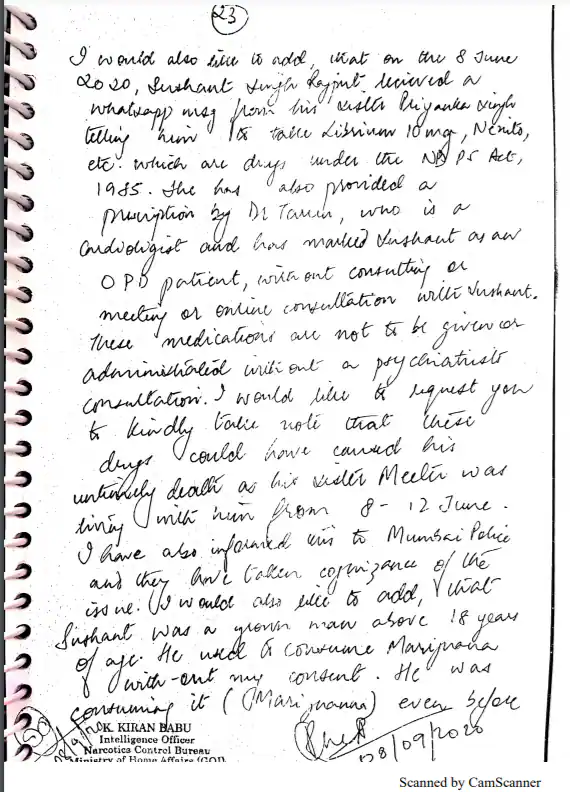 23
I would also like to add, that on the 8 June
2020, Sushant Singh Rajput recieved a
whatsapp msg from his sister Priyanka Singh
telling him to take Librium 10 mg, Nexito,
etc. which are drugs under the NDPS Act,
1985. She has also provided a
prescription by Dr Tarun, who is a
Cardiologist and has marked Sushant as an
OPD patient, without consulting or
meeting or online consultation with Sushant.
These medications are not to be given or
administrated without a psychiatrists
consultation. I would like to request you
to kindly take note that these
drugs could have caused his
untimely death as his sister Meetu was
living with him from 8 - 12 June.
I have also informed this to Mumbai Police
and they have taken cognizance of the
issue. I would also like to add, that
Sushant was a grown man above 18 years
of age. He used to consume Marijuana
with-out my consent. He was
consuming it (Marijuanna) even before
K. KIRAN BABU
Intelligence Officer
Narcotics Control Bureau
Ministry of Home Affairs (GOI)
08/09/2020
Scanned by CamScanner